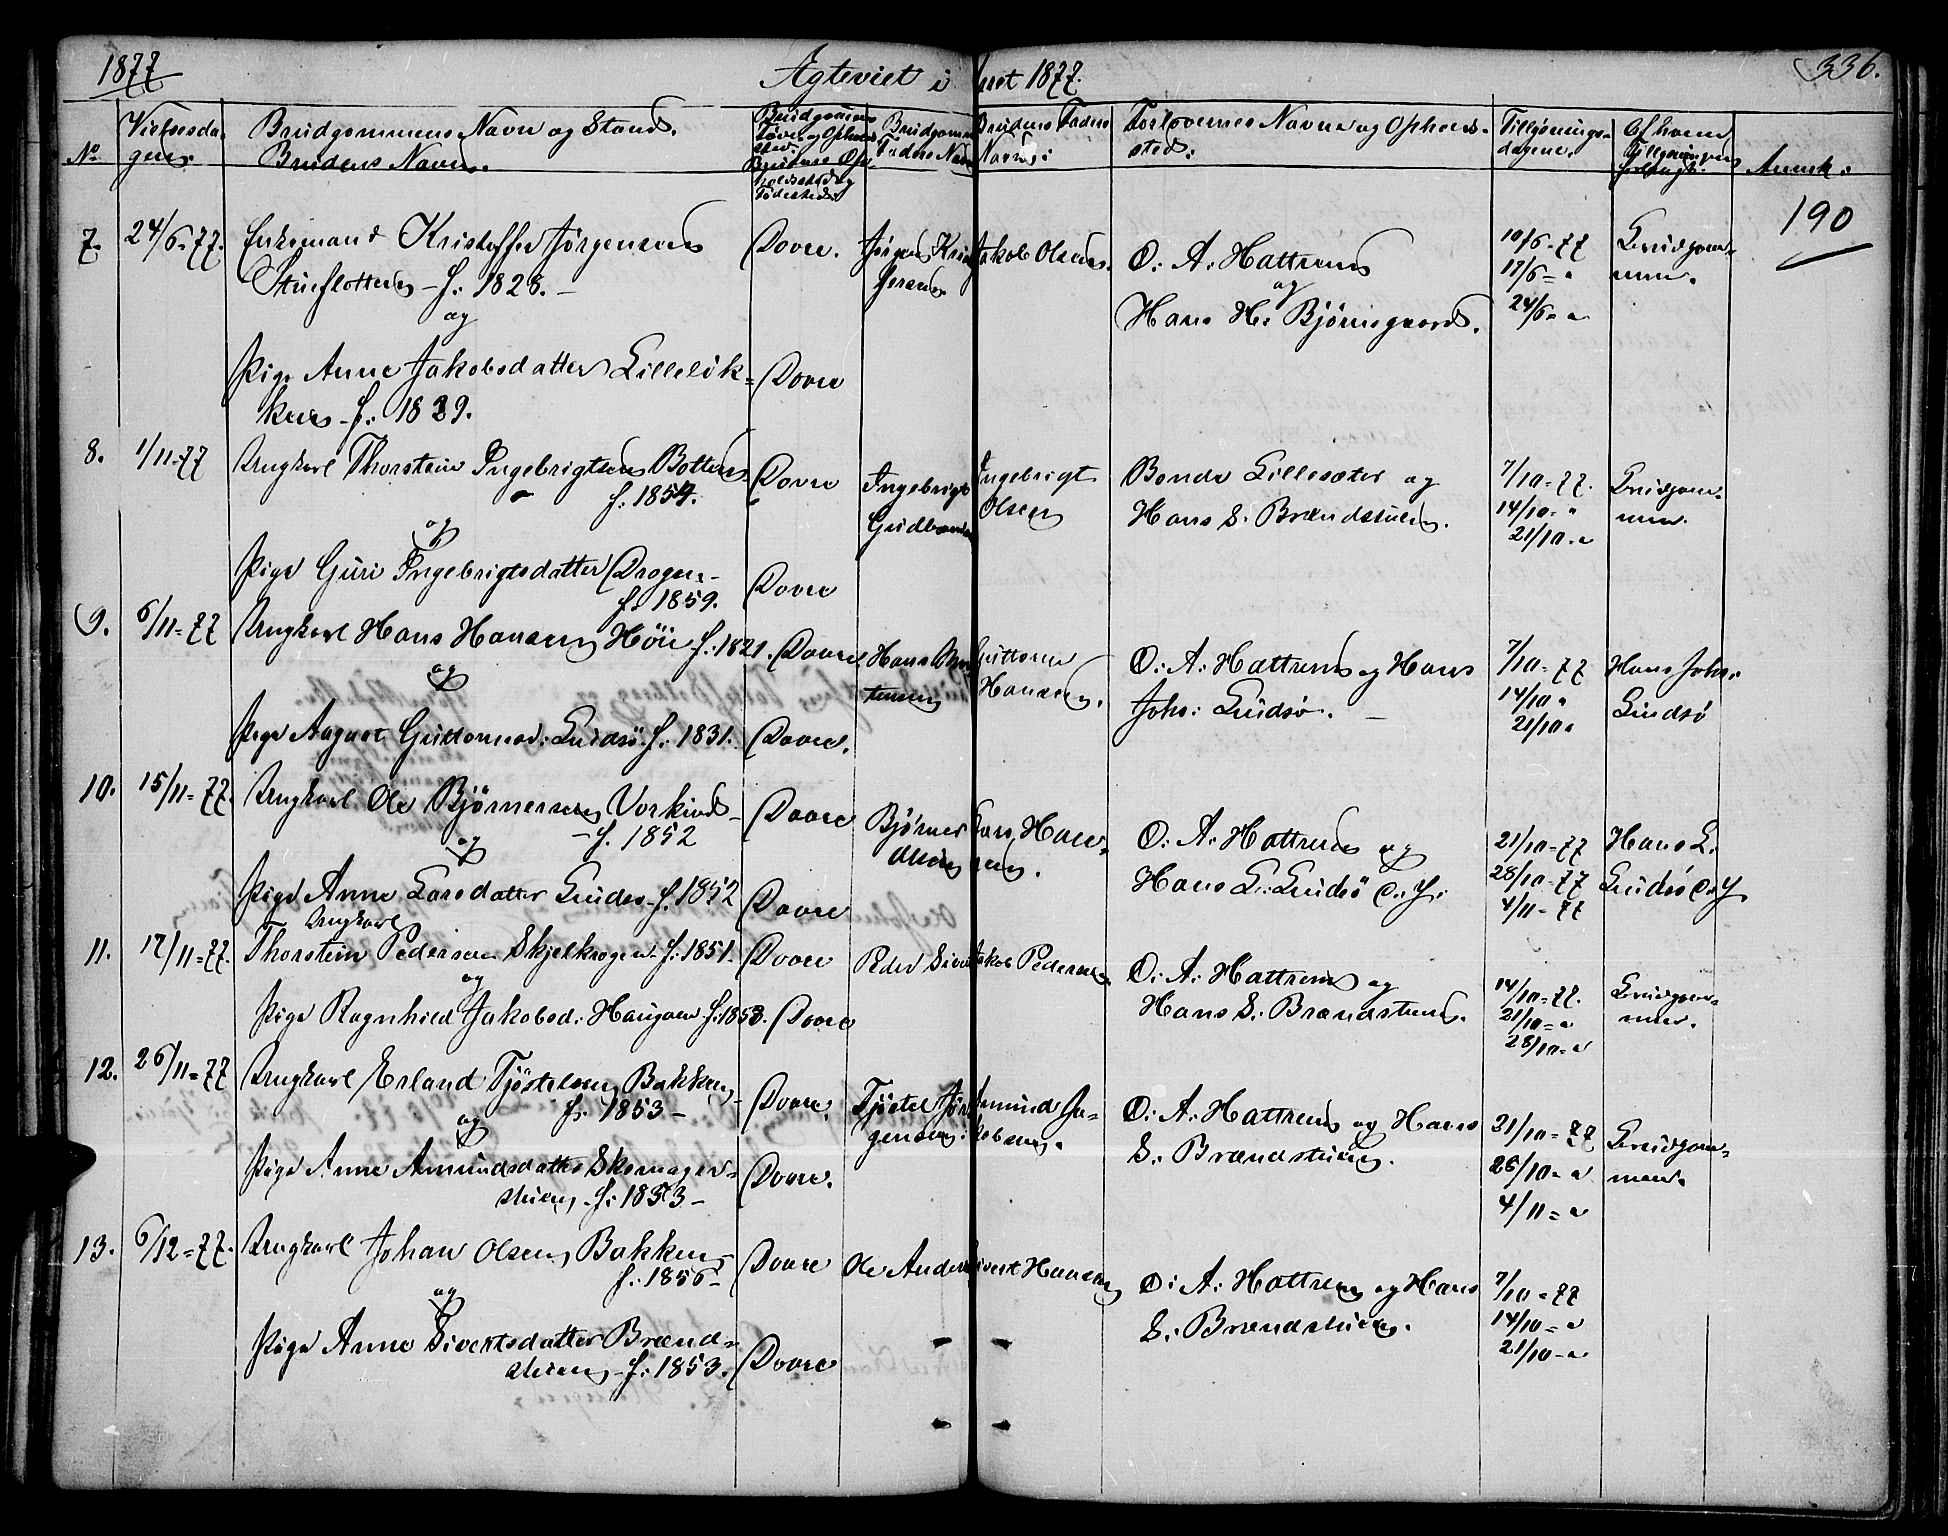 1877
Agteviet i Aaret 1877.
336.
No
Vielsesdagen.
Brudgommens Navn og Stand.
Brudens Navn.
Brudgommens
Faders Navn
Brudens Faders
Navn:
Forlovernes Navne og Opholdssted:
Tillysningsdagene.
Af hvem
Anmk:
190
7. 24/6-77. Enkemand Kristoffer Jørgensen Dovre. Jørgen Jakob Olsen. O: A: Hattrem 10/6-77 Brudgom-
Stueflotten - f: 1828. - 17/6- " men.
og og 24/6- "
Hans H: Bjørnsgaard.
Pige Anne Jakobsdatter Lilleløk= Dovre
ken - f: 1829.
8. 1/11-77 Ungkarl Thorstein Ingebrigtsen Botten Dovre Ingebrigt Ingebrigt Bonde Lillesæter og 7/10-77. Brudgom-
f: 1854. Gudbrands Olsen Hans S. Brændstuen. 14/10- " men.
og 21/10- "
Pige Guri Ingebrigtsdatter Dragen- Dovre
f. 1859.
9. 6/11=77 Ungkarl Hans Hansen Høie f: 1821. Dovre Hans Guttorm O: A: Hattrem og Hans 7/10-77 Hans Johs:
og tensen Hansen. Johs: Lindsø. - 14/10 " Lindsø
21/10 "
Pige August Guttormsd: Lindsø f: 1831. Dovre.
10. 15/11=77. Ungkarl Ole Bjørnersen Vorkind- Dovre Bjørner Lars Han- O: A: Hattrem og 21/10-77 Hans L:
- f. 1852 Olsen sen. Hans L: Lindsø d: y: 28/10-77 Lindsø d: y
og 4/11-77
Pige Anne Larsdatter Lindsø - f. 1852 Dovre
Ungkarl
11. 17/11=77. Thorstein Pedersen Skjelkrogen - f: 1851. Dovre Peder Jakob Pedersen O: A: Hattrem og 14/10=77. Brudgom-
og Hans S. Brændstuen. 21/10= " men.
Pige Ragnhild Jakobsd: Haugen f: 1853. Dovre 28/10= "
12. 26/11=77 Ungkarl Erland Tjøstelsen Bakken- Dovre. Tjøstel Jør Amund Ja= O: A: Hattrem og Hans 21/10=77 Brudgom-
f: 1853 - gensen: kobsen. S. Brændstuen. 28/10- " men.
og 4/11= "
Pige Anne Amundsdatter Skomager= Dovre.
stuen - f: 1853 -
13. 6/12=77. Ungkarl Johan Olsen Bakken- Dovre Ole Anders Sivert Hansen O: A: Hattrem og Hans 7/10=77
f: 1856- S. Brændstuen. 14/10= "
og 21/10- "
Pige Anne Sivertsdatter Brænd= Dovre
stuen - f: 1853.